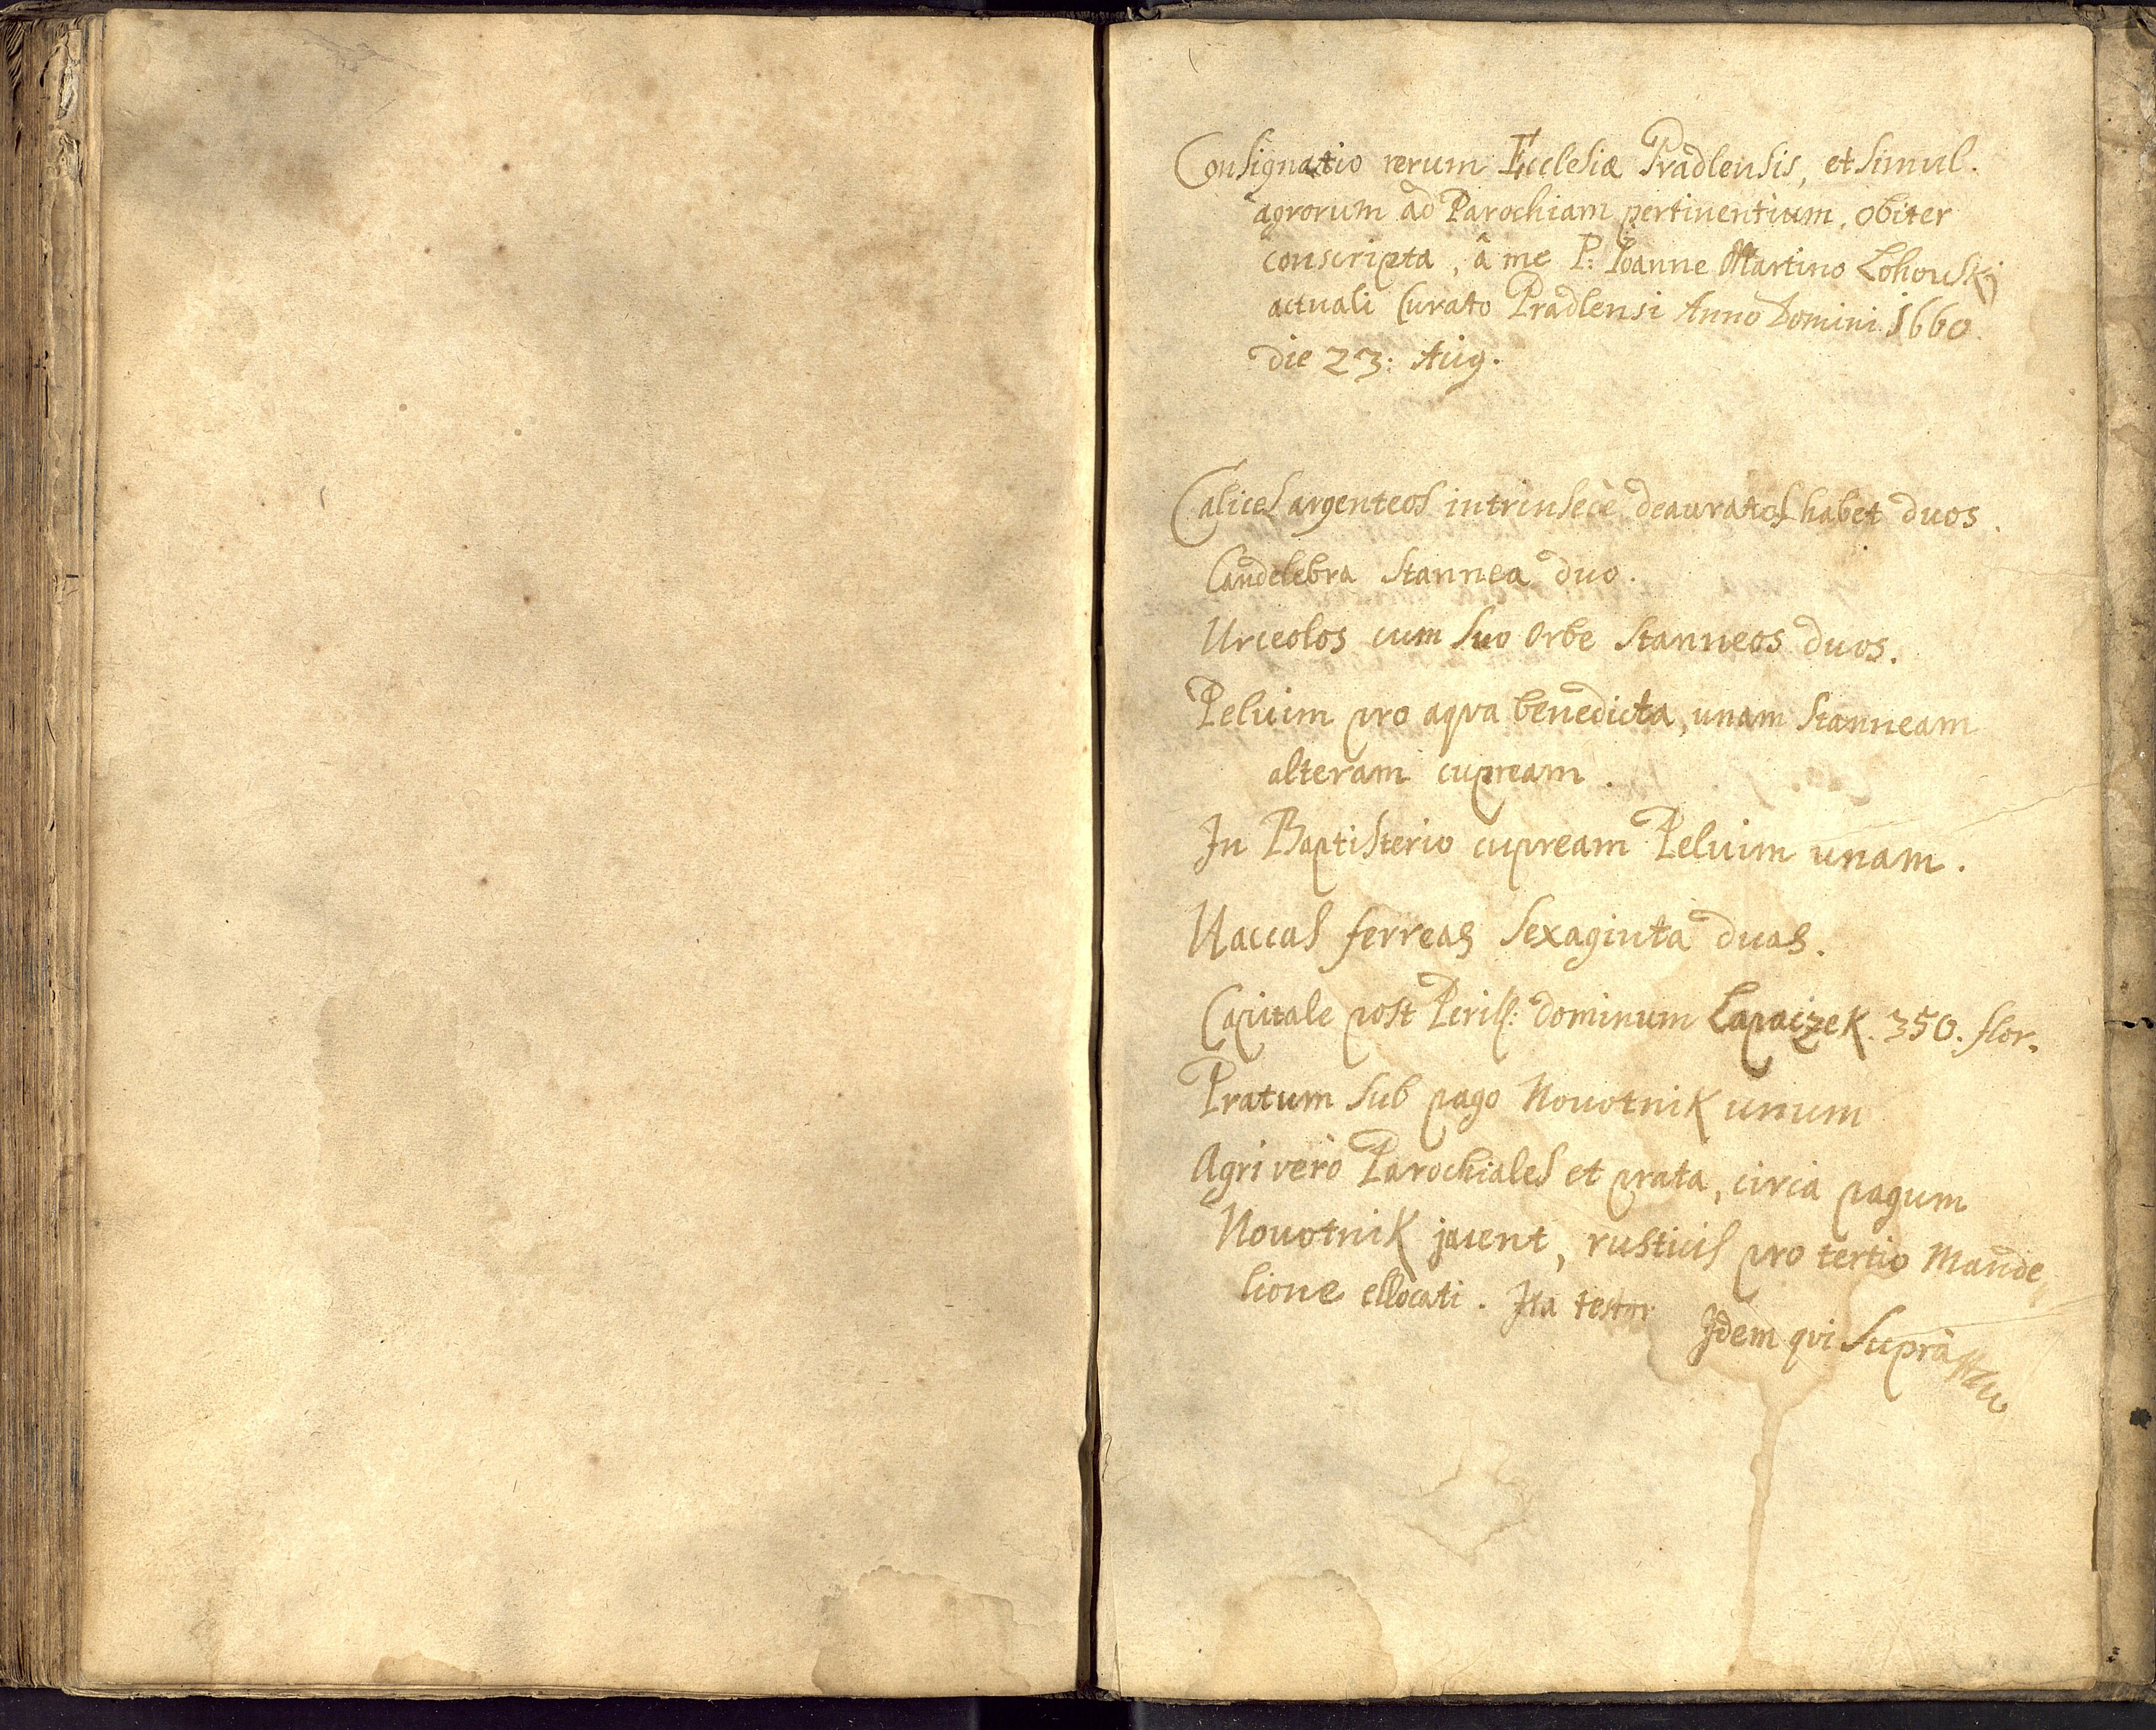 Consignatio rerum Ecclesiæ Pradlensis, et simul.
agrorum ad Parochiam pertinentium, obiter
conscripta, â me P: Ioanne Martino Lohouskj
actuali Curato Pradlensi Anno Domini 1660.
die 23: Aug.
Calices argenteos intrinsecè deauratos habet duos.
Candelebra stannea duo.
Urceolos cum suo orbe stanneos duos.
Peluim pro aqva benedicta, unam stanneam
alteram cupream.
In Baptisterio cupream Peluim unam.
Uaccas ferreas sexaginta duas.
Capitale post Perill: dominum Lapaczek. 350. flor.
Pratum sub pago Nouotnik unum
Agri verò Parochiales et prata, circa pagum
Nouotnik jacent, rusticis pro tertio Mande,
lione ellocati. Ita testor
Idem qvi suprà